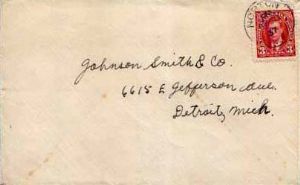 NORTON
3 3
Johnson Smith & Co.
6615 E Jefferson Ave.
Detroit, Mich.